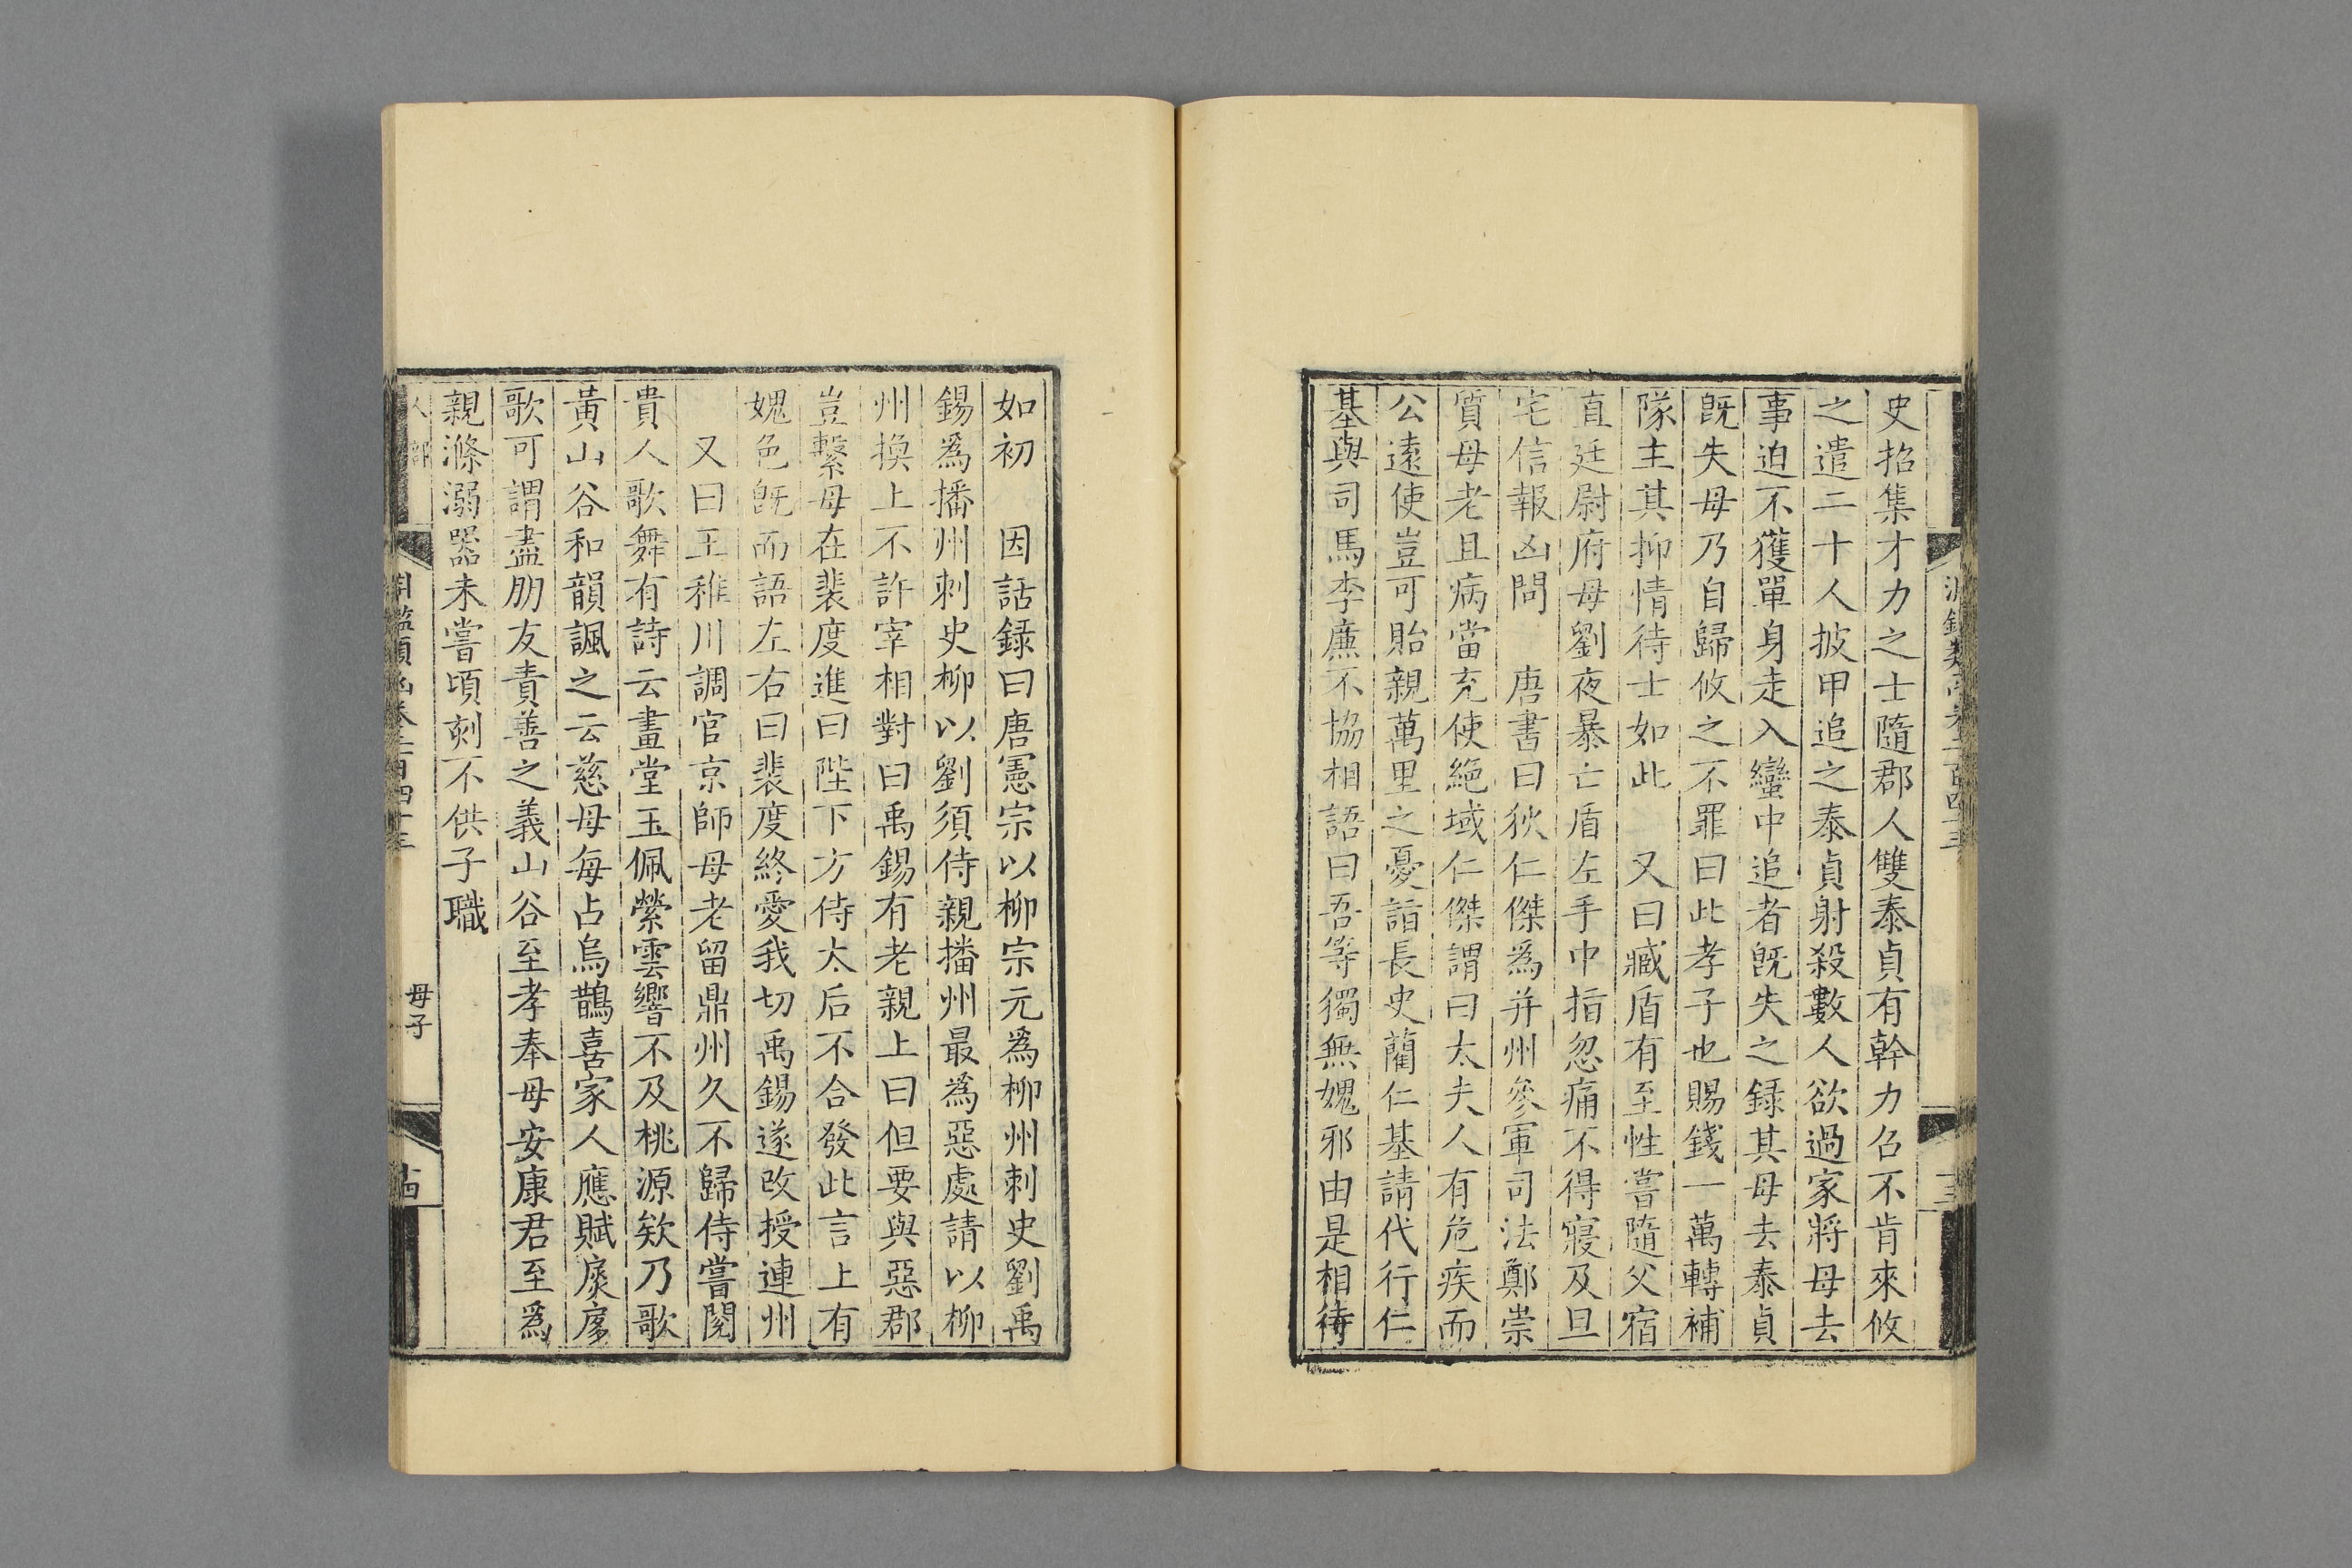 史招集才力之士隨郡人雙泰貞有幹力召不肯來攸
之遣二十人披甲追之泰貞射殺數人欲過家將母去
事迫不獲單身走入蠻中追者旣失之録其母去泰貞
旣失母乃自歸攸之不罪曰此孝子也賜錢一萬轉補
隊主其抑情待士如此　又曰臧盾有至性嘗隨父宿
直廷尉府母劉夜暴亡盾左手中指忽痛不得寢及旦
宅信報凶問　唐書曰狄仁傑爲并州參軍司法鄭崇
質母老且病當充使絶域仁傑謂曰太夫人有危疾而
公遠使豈可貽親萬里之憂詣長史藺仁基請代行仁
基與司馬李廉不協相語曰吾等獨無媿邪由是相待
如初　因話録曰唐憲宗以柳宗元爲柳州刺史劉禹
錫爲播州刺史柳以劉須侍親播州最爲惡處請以柳
州換上不許宰相對曰禹錫有老親上曰但要與惡郡
豈繫母在裴度進曰陛下方侍太后不合發此言上有
媿色旣而語左右曰裴度終愛我切禹錫遂改授連州
又曰王稚川調官京師母老留鼎州久不歸侍嘗閱
貴人歌舞有詩云畫堂玉佩縈雲響不及桃源欸乃歌
黃山谷和韻諷之云慈母每占烏鵲喜家人應賦扊扅
歌可謂盡朋友責善之義山谷至孝奉母安康君至爲
親滌溺器未嘗頃刻不供子職
母子